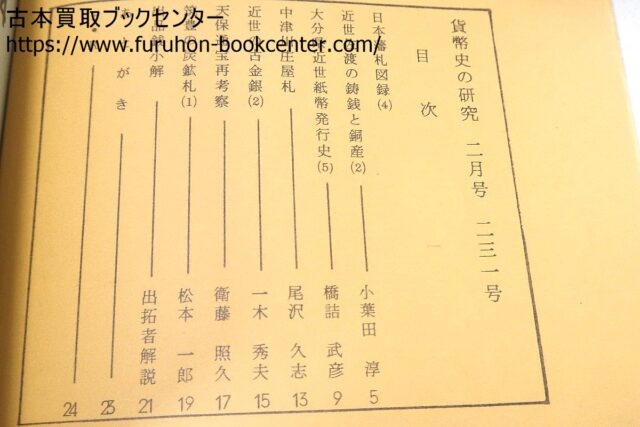 古本買取ブックセンター
https://www.furuhon-bookcenter.com/
貨幣史の研究 二月号 二三一号
目次
日本藩札図録(4)
近世 渡の鋳銭と銅産(2) 小葉田 淳 5
大分県近世紙幣発行史(5) 橋詰 武彦 9
中津 庄屋札 尾沢 久志 13
近世 古金銀(2) 一木 秀夫 15
天保通宝再考察 衛藤 照久 17
筑豊 炭鉱札(1) 松本 一郎 19
銭小解 出拓者解説 21
がき 23
24